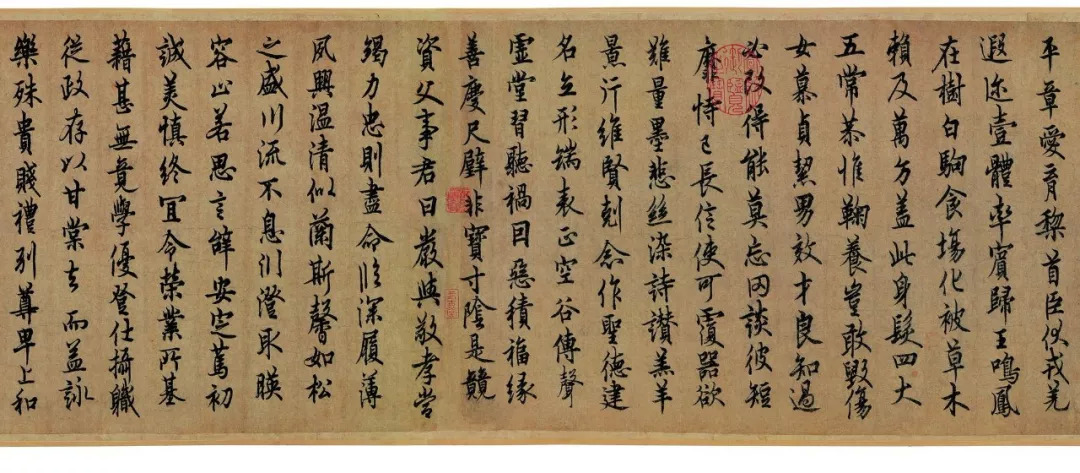 平章愛育黎首臣伏戎羌
遐迩壹體率賓歸王鳴鳳
在樹白駒食場化被草木
賴及萬方盖此身髮四大
五常恭惟鞠養豈敢毀傷
女慕貞絜男效才良知過
必改得能莫忘罔談彼短
靡恃己長信使可覆器欲
難量墨悲絲染詩讃羔羊
景行維賢剋念作聖德建
名立形端表正空谷傳聲
虛堂習聽禍因惡積福緣
善慶尺璧非寶寸陰是競
資父事君曰嚴與敬孝當
竭力忠則盡命臨深履薄
夙興溫清似蘭斯馨如松
之盛川流不息渊澄取暎
容止若思言辭安定篤初
誠美慎終宜令榮業所基
藉甚無竟學優登仕攝職
從政存以甘棠去而益詠
樂殊貴賤禮別尊卑上和